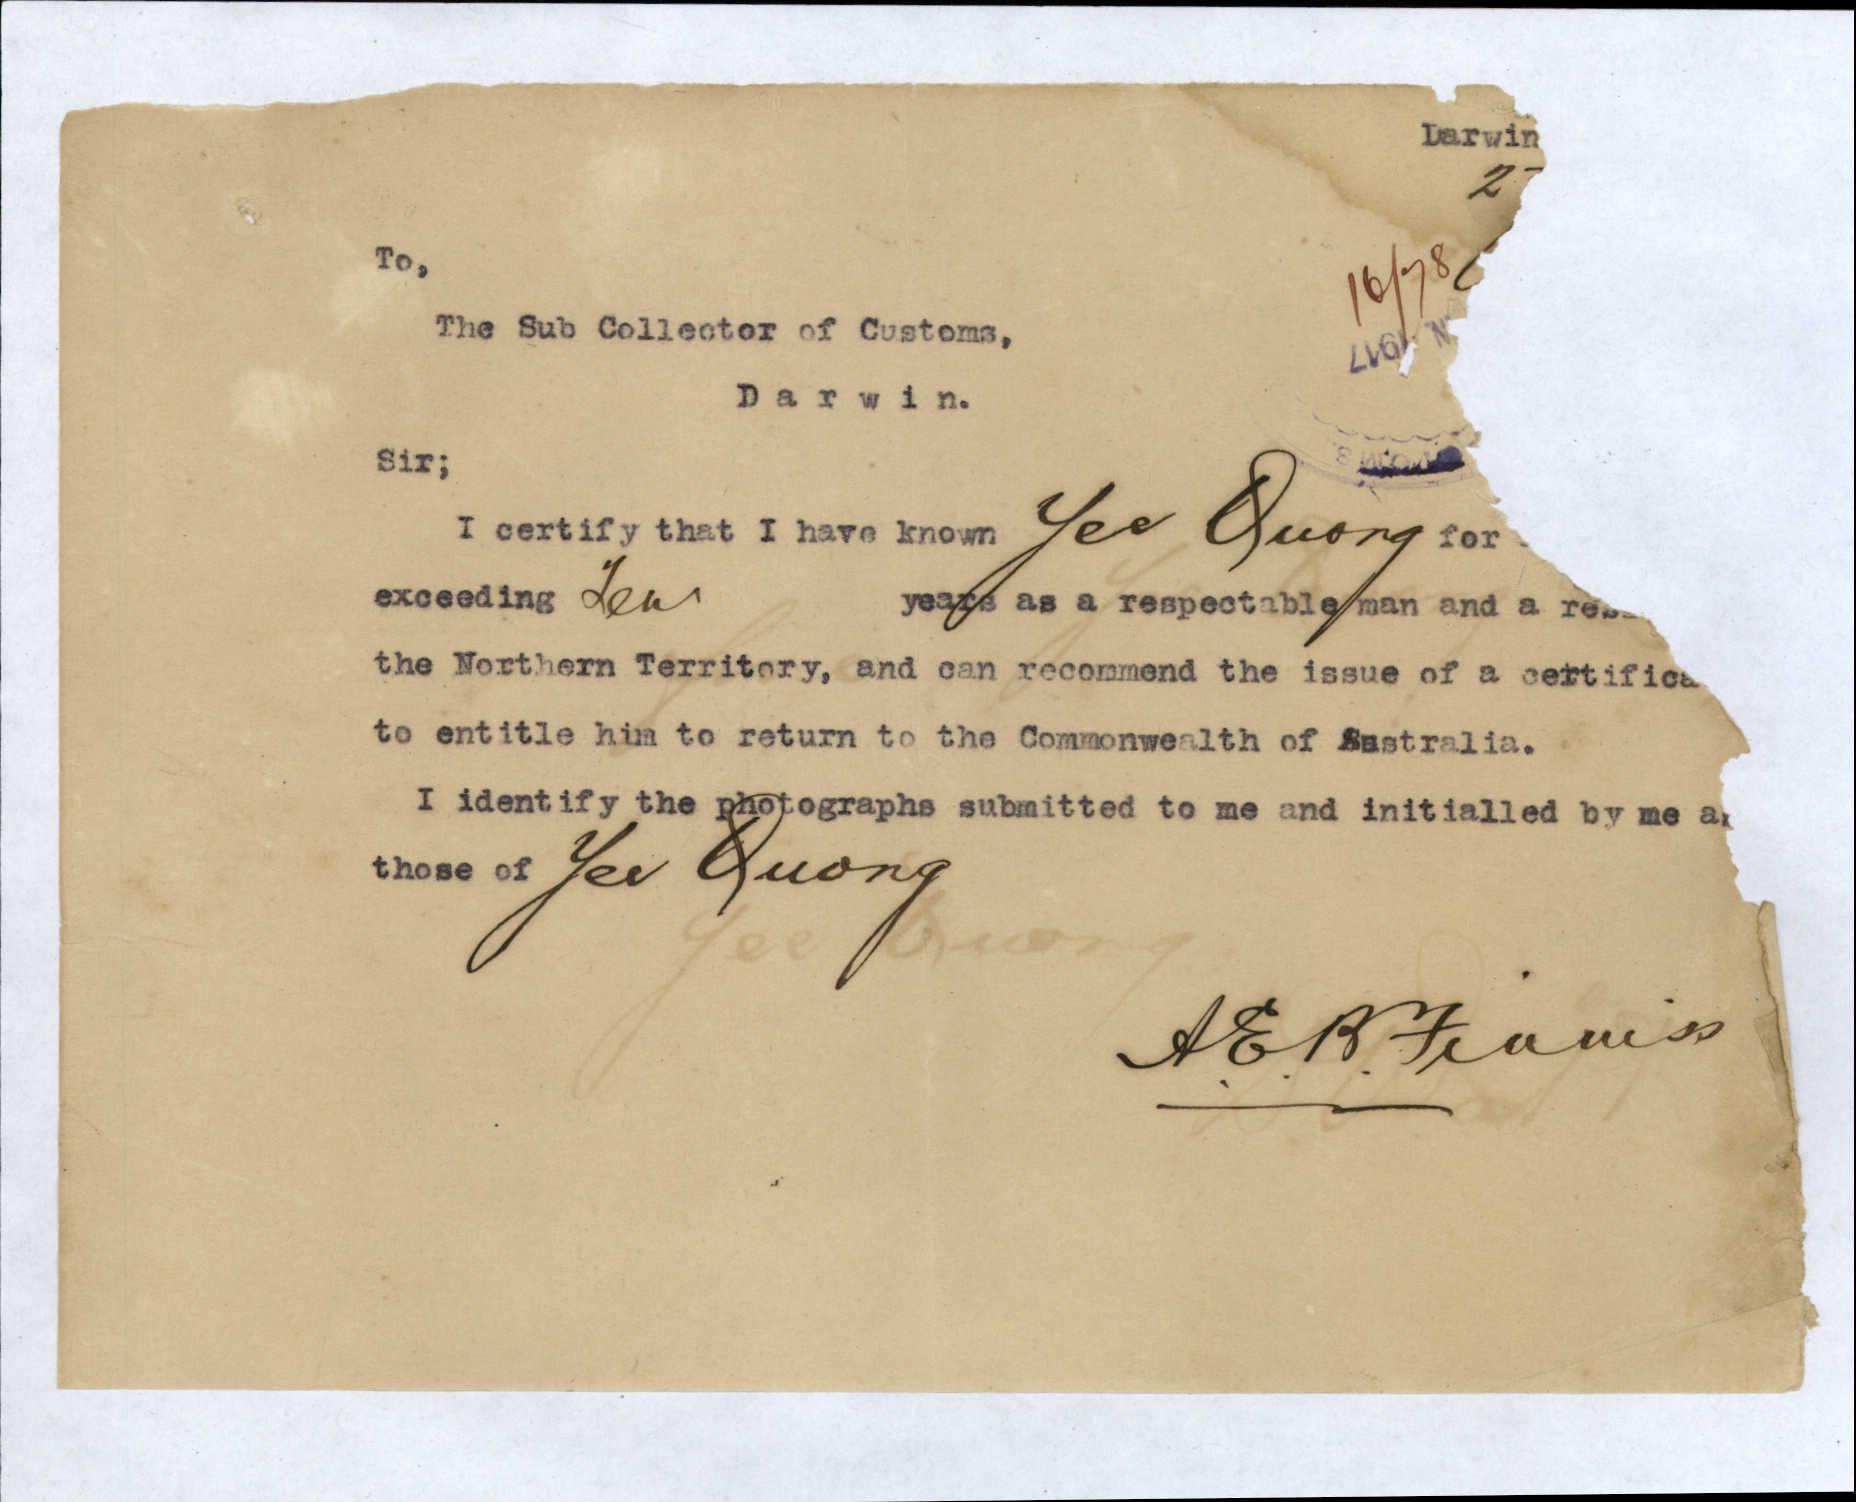 Darwin
2
To,
16/78
The Sub Collector of Customs,
1917
D a r w i n.
Sir;
I certify that I have known Yee Quong for
exceeding Ten years as a respectable man and a res
the Northern Territory, and can recommend the issue of a certifica
to entitle him to return to the Commonwealth of Australia.
I identify the photographs submitted to me and initialled by me a
those of Yee Quong
Yee Quong
A. E. B. Finniss